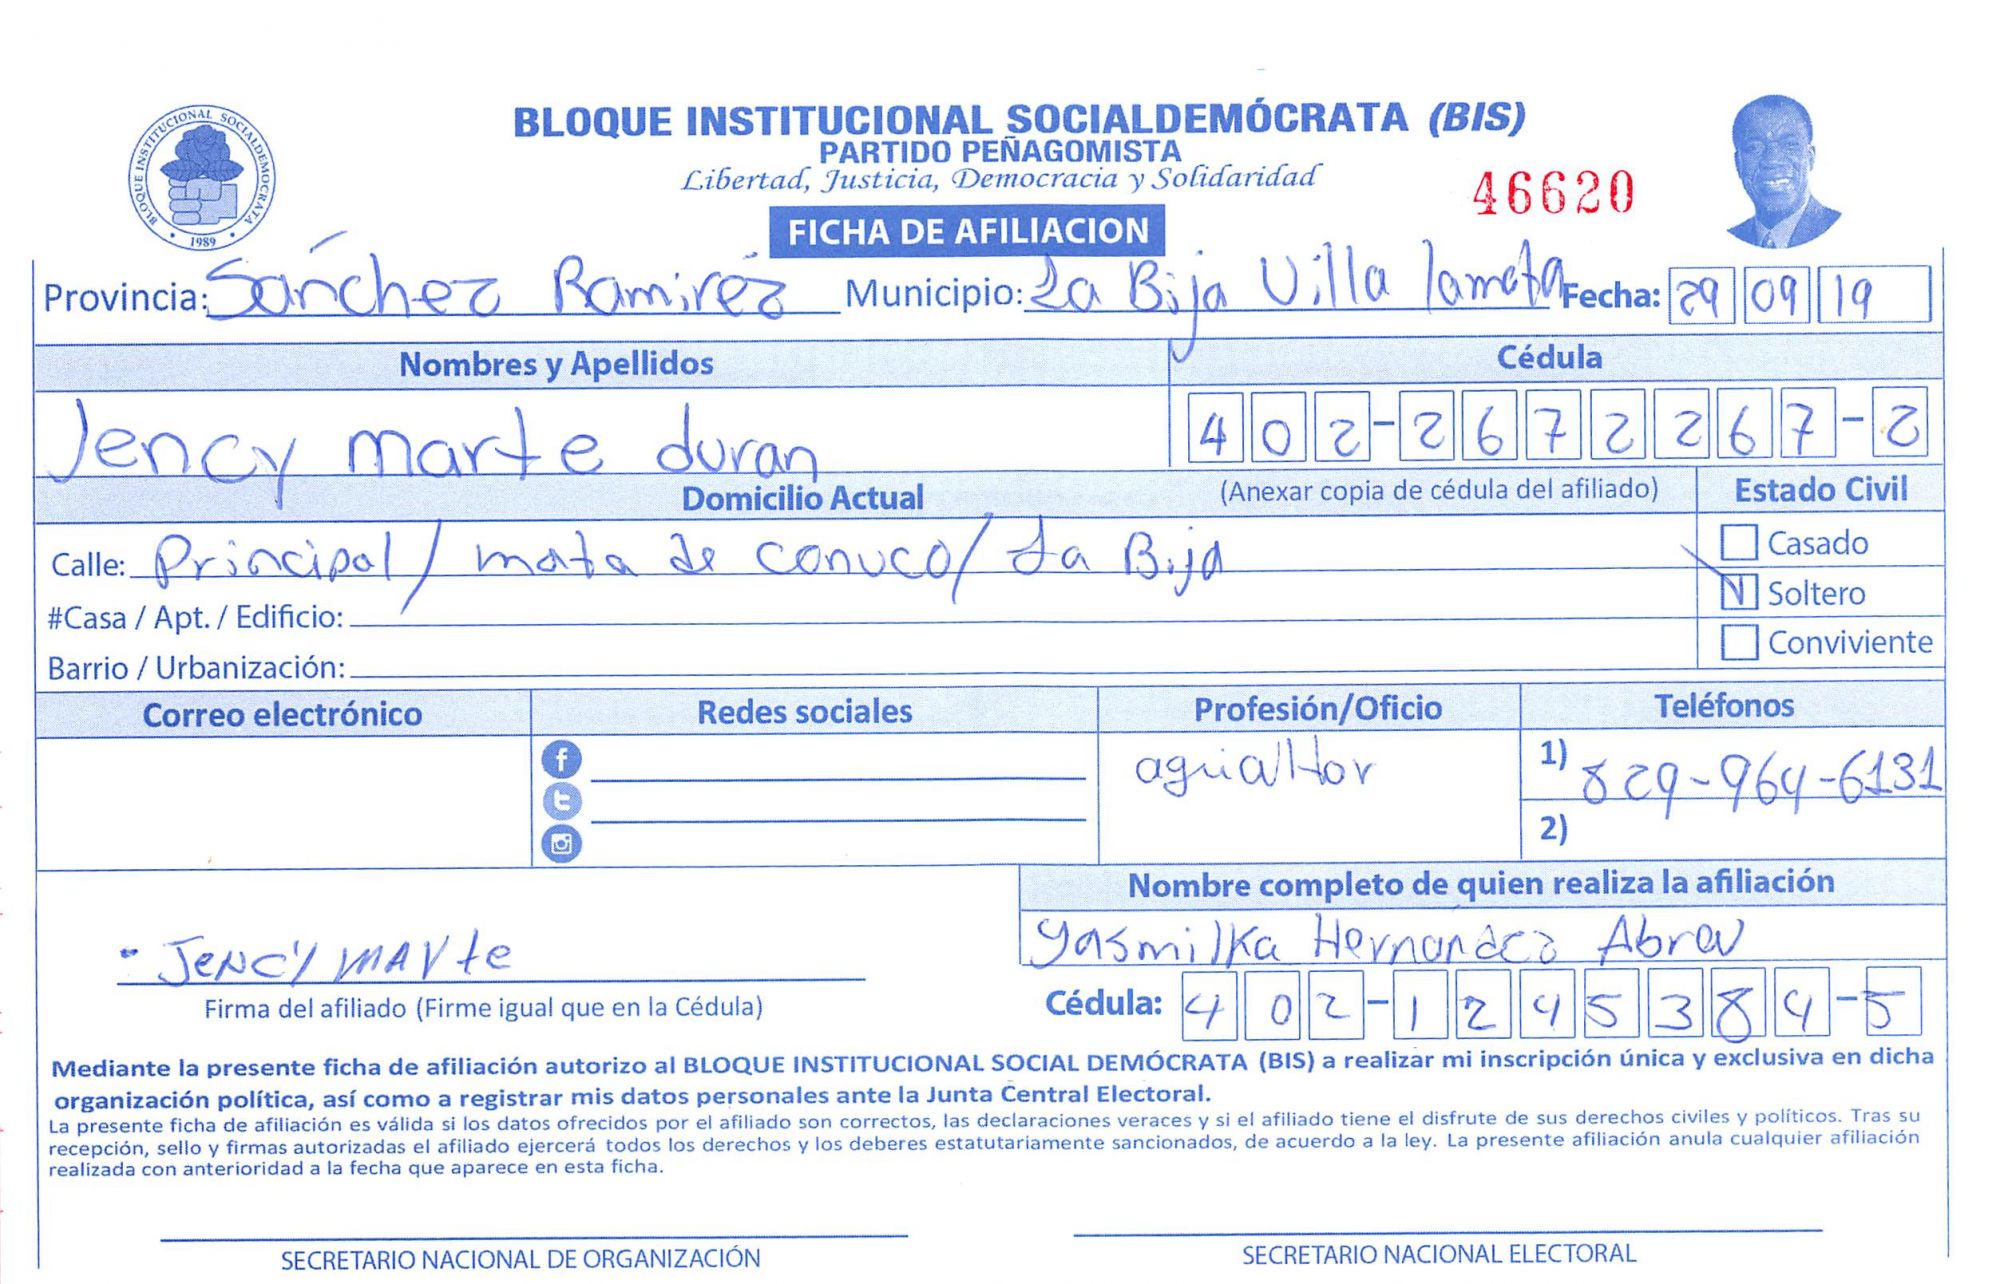 BLOQUE INSTITUCIONAL SOCIALDEMÓCRATA (BIS)
PARTIDO PEÑAGOMISTA
Libertad, Justicia, Democracia y Solidaridad
46620
BLOQUE INSTITUCIONAL SOCIALDEMOCRATA
1989
FICHA DE AFILIACION
Provincia: Sánchez Ramiréz Municipio: La Bija Villa lamata Fecha: 29 09 19
Nombres y Apellidos Cédula
Jency marte duran 402-2672267-2
Domicilio Actual (Anexar copia de cédula del afiliado) Estado Civil
Calle: Principal / mata de conuco / La Bija
Casado
#Casa / Apt. / Edificio: Soltero
Barrio / Urbanización: Conviviente
Correo electrónico Redes sociales Profesión/Oficio Teléfonos
agricultor 1) 829-964-6131
2)
Nombre completo de quien realiza la afiliación
Yasmilka Hernandez Abreu
Jency marte
Firma del afiliado (Firme igual que en la Cédula) Cédula: 402-1245384-5
Mediante la presente ficha de afiliación autorizo al BLOQUE INSTITUCIONAL SOCIAL DEMÓCRATA (BIS) a realizar mi inscripción única y exclusiva en dicha
organización política, así como a registrar mis datos personales ante la Junta Central Electoral.
La presente ficha de afiliación es válida si los datos ofrecidos por el afiliado son correctos, las declaraciones veraces y si el afiliado tiene el disfrute de sus derechos civiles y políticos. Tras su
recepción, sello y firmas autorizadas el afiliado ejercerá todos los derechos y los deberes estatutariamente sancionados, de acuerdo a la ley. La presente afiliación anula cualquier afiliación
realizada con anterioridad a la fecha que aparece en esta ficha.
SECRETARIO NACIONAL DE ORGANIZACIÓN SECRETARIO NACIONAL ELECTORAL